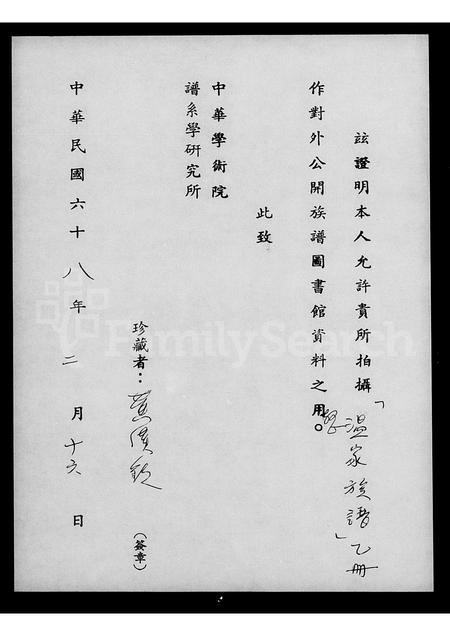 茲證明本人允許貴所拍攝「溫家族譜」乙冊
作對外公開族譜圖書館資料之用。
此致
中華學術院
譜系學研究所
珍藏者：黃漢欽
（簽章）
中華民國六十八年二月十六日
FamilySearch